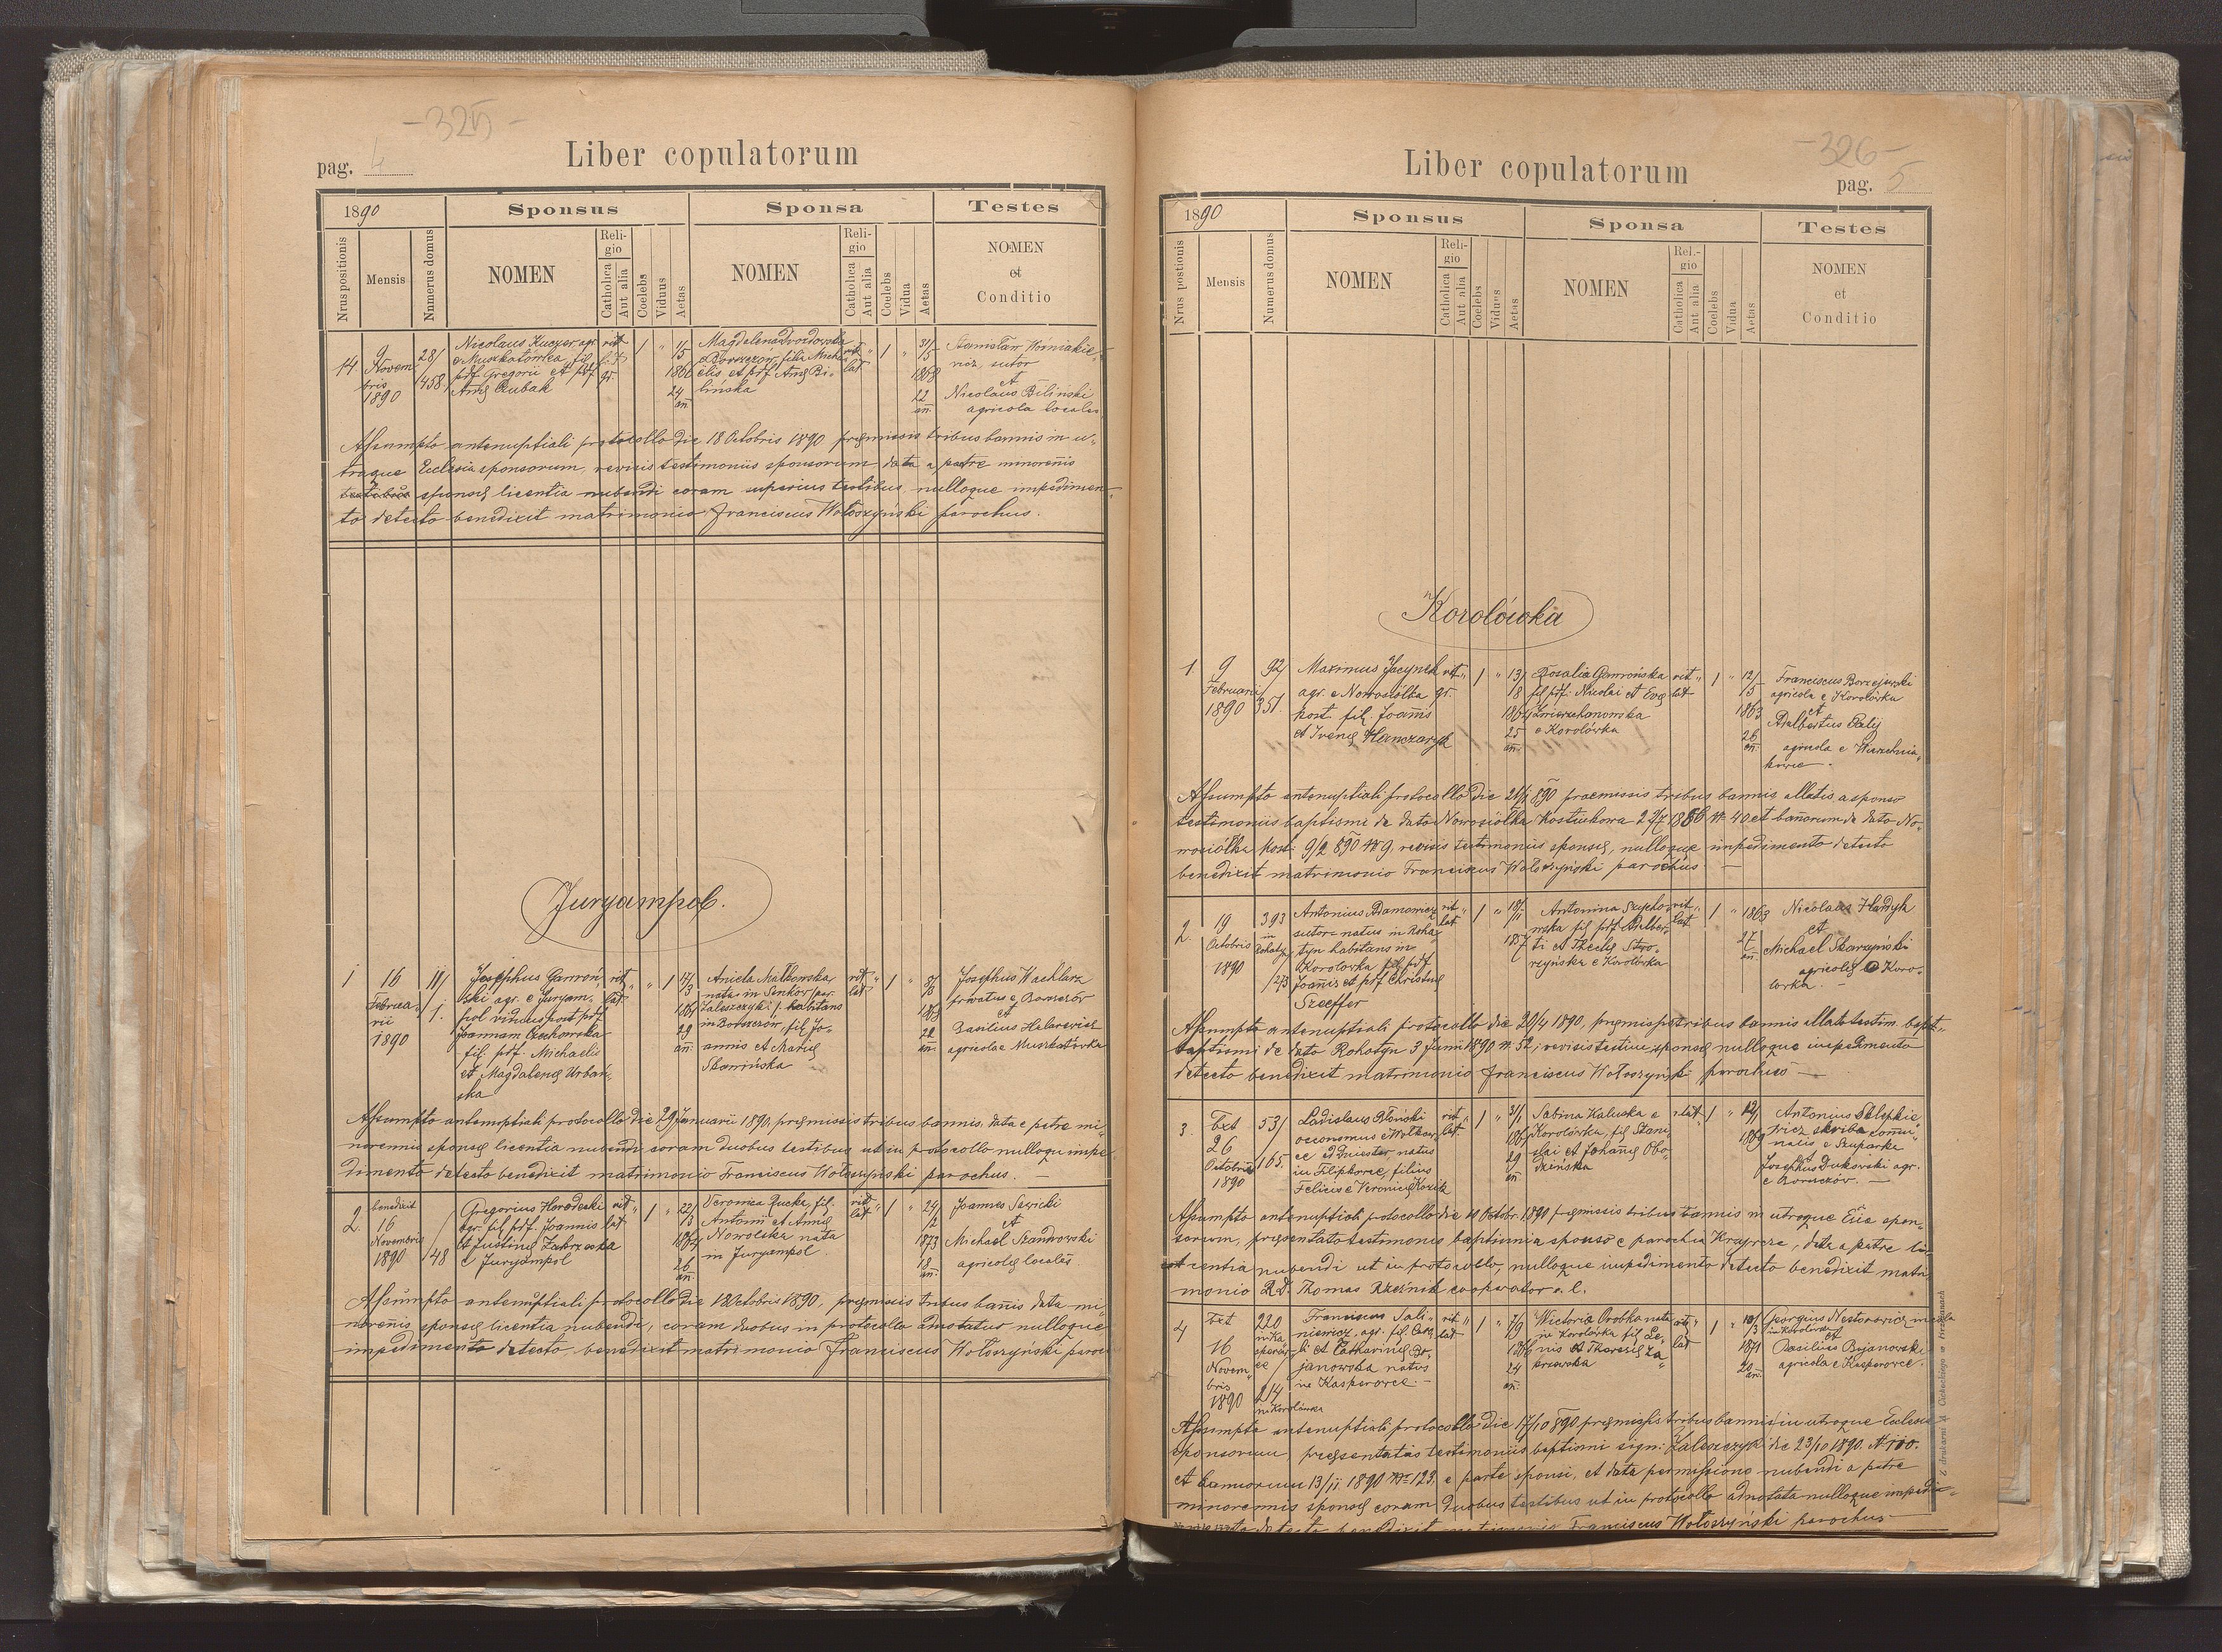 - 325 -
pag. 4
Liber copulatorum
1890
Sponsus
Sponsa
Testes
Nrus positionis
Mensis
Numerus domus
NOMEN
Religio
Catholica
Aut alia
Coelebs
Viduus
Aetas
NOMEN
Religio
Catholica
Aut alia
Coelebs
Vidua
Aetas
NOMEN
et
Conditio
14
9
Novem
bris
1890
28/
458
Nicolaus Kuczer agr.
e Muszkatówka, fil.
pdf. Gregorii et pdf
Annę Rubak
rit
gr.
1
"
11/5
1866
24
añ.
Magdalena Drozdowska
e Borszczow, filia Micha
elis et pdf Annę Bi-
lińska
rit
lat
"
1
"
31/5
1868
22
añ.
Stanislaus Woźniakie-
wicz, sutor
et
Nicolaus Biliński
agricola locales
Assumpto antenuptiali protocollo die 18 Octobris 1890 pręmissis tribus bannis in u-
traque Ecclesia sponsorum, revisis testimoniis sponsorum data a patre minorennis
sponsę licentia nubendi coram superius testibus, nulloque impedimen-
to detecto benedixit matrimonio Franciscus Wołoszyński parochus.
Juryampol.
1
16
Februa-
rii
1890
11/
1.
Josephus Gawroń-
ski agr. e Juryam-
pol viduus post pdf
Joannam Czechowska
fil. pdf. Michaelis
et Magdalenę Urbań-
ska
rit
lat
"
"
1
17/3
1861
29
añ.
Aniela Małkowska
nata in Sinków par.
Zaleszczyki /. habitans
in Borszczów, fil. Jo-
annis et Marię
Skawińska
rit
lat
"
1
"
1868
22
añ.
Josephus Wachlarz
privatus e Borszczów
et
Basilius Helarewicz
agricola e Muszkatówka
Assumpto antenuptiali protocollo die 29 Januarii 1890, pręmissis tribus bannis, data e patre mi-
norennis sponsę licentia nubendi coram duobus testibus ut in protocollo nulloqu impe-
dimento detecto benedixit matrimonio Franciscus Wołoszyński parochus. —
2
benedixit
16
Novembris
1890
/48
Gregorius Horodecki
agr. fil. pdf. Joannis
et Justinę Zakrzeska
e Juryampol
rit
lat
"
1
"
22/3
1864
26
añ.
Veronica Rucka, fil.
Antonii et Annę
Nowolska nata
in Juryampol.
rit
lat
"
1
"
24/2
1873
18
añ.
Joannes Sawicki
et
Michael Szankowski
agricolę locales.
Assumpto antenuptiali protocollo die 18 Octobris 1890, pręmissis tribus bannis data mi-
norennis sponsę licentia nubendi, coram duobus in protocollo adnotatis nulloque
impedimento detecto benedixit matrimonio Franciscus Wołoszyński paroc
- 326 -
pag. 5
Liber copulatorum
1890
Sponsus
Sponsa
Testes
Nrus postionis
Mensis
Numerus domus
NOMEN
Religio
Catholica
Aut alia
Coelebs
Viduus
Aetas
NOMEN
Rel.-gio
Catholica
Aut alia
Coelebs
Vidua
Aetas
NOMEN
et
Conditio
Korolówka
1.
9
Februarii
1890
92/
351.
Maximus Jacynek
agr. e Nowosiółka
kost. fil. Joannis
et Irenę Hanczaryk
rit
gr.
"
1
"
13/8
1864
25
añ.
Rosalia Gawrońska
fil pdf. Nicolai et Evę
Zwierzchanowska
e Korolówka
rit
lat
"
1
"
12/5
1863
26
añ.
Franciscus Borzejewski
agricola e Korolówka
et
Adalbertus Balij
agricola e Wierzchnia-
kowce.
Assumpto antenuptiali protocollo die 21/1 890 praemissis tribus bannis allatis a sponso
testimoniis baptismi de dato Nowosiółka Kostiukowa 27/7 1886 Nr 40 et banorum de dato No-
wosiółka kost: 9/2 890 Nr 9, revisis testimoniis sponsę, nulloque impedimento detecto
benedixit matrimonio Franciscus Wołoszyński parochus —
2.
19
Octobris
1890
393
in
Rohatyn
/273
Antonius Adamowicz
sutor natus in Roha-
tyn habitans in
Korolowka fil pdf
Joannis et pdf Christinę
Szeffer
rit
lat
"
1
"
18/11
1857
Antonina Szycho-
wska fil pdf Adalber-
ti et Theclę Stro-
czyńska e Korolówka
rit
lat
"
1
"
1863
27
añ.
Nicolaus Handyk
et
Michael Skarzyński
agricolę e Koro-
lowka. —
Assumpto antenuptiali protocollo die 20/4 1890, pręmissis tribus bannis allato testim. bapt-
baptismi de dato Rohatyn 3 Junii 1890 Nr. 52, revisis testim. sponsę nulloque impedimento
detecto benedixit matrimonio Franciscus Wołoszyński parochus —
3.
Ext
26
Octobris
1890
53/
165.
Ladislaus Błoński
oeconomus e Wołkow-
ce ad Dniester, natus
in Filipkowce, filius
Felicis e Veronicę Kozik
rit
lat
"
1
"
3/1
1861
29
añ
Sabina Kaluska e
Korolówka, fil. Stani-
slai et Johannę Obo-
dzińska
r lat
"
1
"
12/
1869
Antonius Sklepkie-
wicz skriba commu-
nalis e Szuparka
et
Josephus Dukowski agr.
e Borszczów. —
Assumpto antenuptiali protocollo die 10 Octobr. 1890 pręmissis tribus bannis in utroque Ecclia spon-
sorum, pręsentato testimonio baptismi a sponso e parochia Krzywcze, data a patre li-
centia nubendi ut in protocollo, nulloque impedimento detecto benedixit matri
monio R.D. Thomas Rzeźnik cooperator e. l.
4
Ext
16
Novem-
bris
1890
220
in Ka
sperow-
ce
214
in Korolówka
Franciscus Sali-
niewicz, agr. fil. Caro-
li et Catharinę Bo-
janowska natus
in Kasperowce. —
rit
lat
"
1
"
7/9
1866
24
añ.
Wictoria Drobka nata
in Korolówka fil Le-
nis et Theresię Za-
krzewska
rit
lat
"
1
"
10/3
1871
20
añ.
Georgius Nestorowicz
in Korolówka
et
Basilius Bojanowski
agricola e Kasperowce.
Assumpto antenuptiali protocollo die 17/10 890 pręmissis tribus bannis in utroque Ecclesia
sponsorum, pręsentatis testimoniis baptismi sign: Zaleszczyki die 23/10 1890. N 110.
et bannorum 13/11. 1890 Nr 123, e parte sponsi, et data permissione nubendi a patre
minorennis sponsę coram duobus testibus ut in protocollo adnotata nulloque impedi-
to detecto benedixit matrimonio Franciscus Wołoszyński parochus